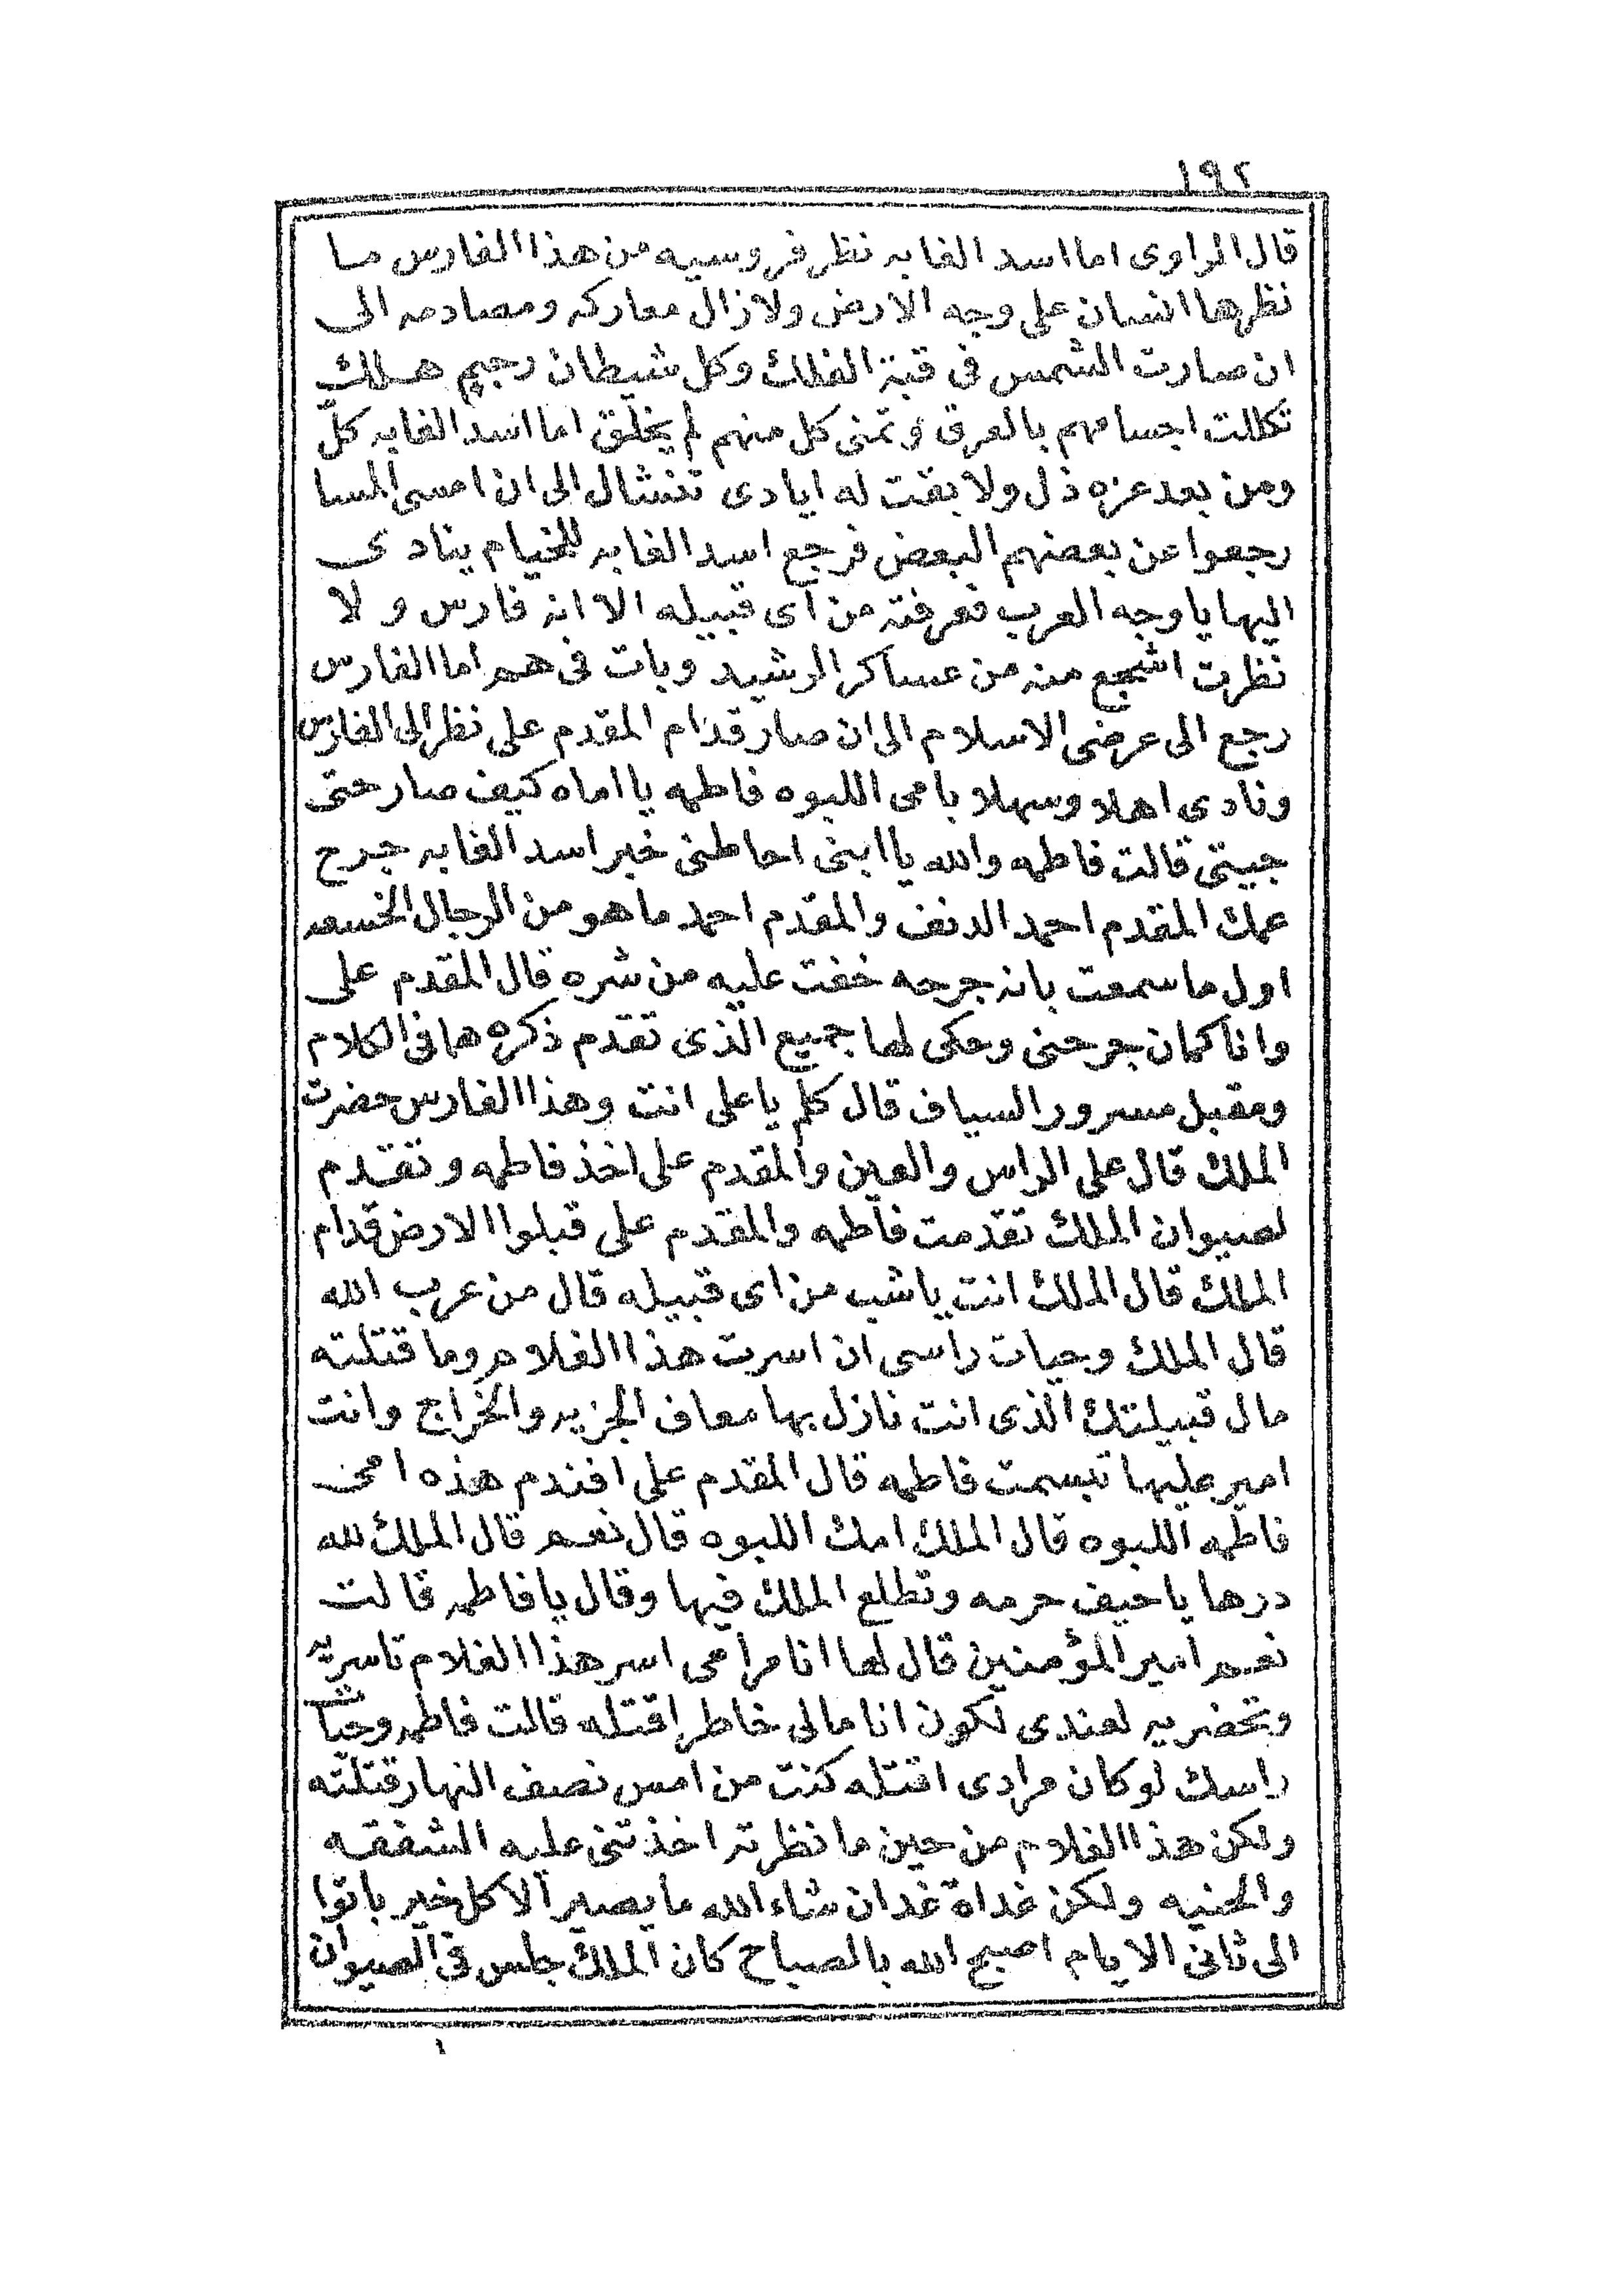 ١٩٢
قال الراوى اما اسد الغابه نظر فروسيه من هذا الفارس ما
نظرها انسان على وجه الارض ولازال معاركه ومصادمه الى
ان صارت الشمس فى قبة الفلك وكل شيطان رجيم هلك
تكللت اجسامهم بالعرق وتمنى كل منهم لم يخلق اما اسد الغابه كلّ
ومن بعد عزه ذل ولا بقت له ايادى تنشال الى ان امسى المسا
رجعوا عن بعضهم البعض فرجع اسد الغابه للخيام ينادى
اليها يا وجه العرب تعرفته من اى قبيله الا انه فارس ولا
نظرت اشجع منه من عساكر الرشيد وبات فى هم اما الفارس
رجع الى عرضى الاسلام الى ان صار قدام المقدم على نظر الى الفارس
ونادى اهلا وسهلا بامى اللبوه فاطمه يا اماه كيف صار حتى
جيتى قالت فاطمه والله يا ابنى احاطنى خبر اسد الغابه جرح
عمك المقدم احمد الدنف والمقدم احمد ما هو من الرجال الخسعه
اول ما سمعت بانه جرحه خفت عليه من شره قال المقدم على
وانا كمان جرحنى وحكى لها جميع الذى تقدم ذكره هما فى الكلام
ومقبل مسرور السياف قال كلم يا على انت وهذا الفارس حضرت
الملك قال على الراس والعين والمقدم على اخذ فاطمه وتقدم
لصيوان الملك تقدمت فاطمه والمقدم على قبلوا الارض قدام
الملك قال الملك انت يا شب من اى قبيله قال من عرب الله
قال الملك وحيات راسى ان اسرت هذا الغلام وما قتلته
مال قبيلتك الذى انت نازل بها معاف الجزيه والخراج وانت
امير عليها تبسمت فاطمه قال المقدم على افندم هذه امى
فاطمه اللبوه قال الملك امك اللبوه قال نعم قال الملك لله
درها يا حيف حرمه وتطلع الملك فيها وقال يا فاطمه قالت
نعم امير المؤمنين قال لها انا مرامى اسر هذا الغلام تاسريه
وتحضريه لعندى لكون انا مالى خاطر اقتله قالت فاطمه وحيات
راسك لو كان مرادى اقتله كنت من امس نصف النهار قتلته
ولكن هذا الغلام من حين ما نظرته اخذتنى عليه الشفقه
والحنيه ولكن غداة غد ان شاء الله ما يصير الا كل خير باتوا
الى ثانى الايام اصبح الله بالصباح كان الملك جلس فى الصيوان